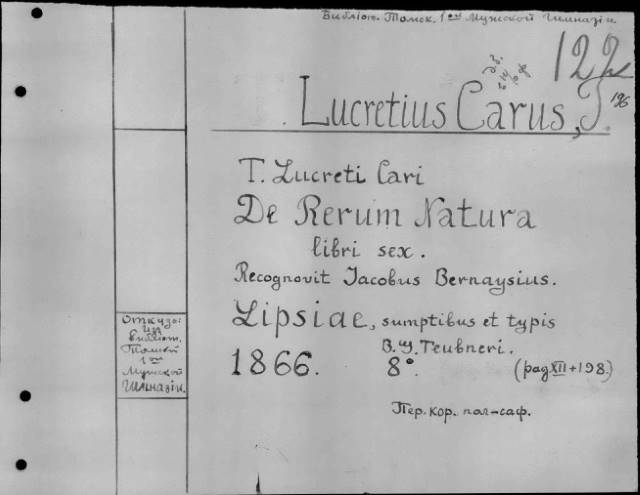 Библіот. Томск. 1ой Мужской Гимназіи.
122
196
Lucretius Carus, T.
T. Lucreti Cari
De Rerum Natura
libri sex.
Recognovit Jacobus Bernaysius.
Lipsiae, sumptibus et typis
B. G. Teubneri.
1866. 8°. (pag XII + 198.)
Пер. кор. пол-саф.
Откуда:
Из
библіот.
Томской
1ой
Мужской
Гимназіи.